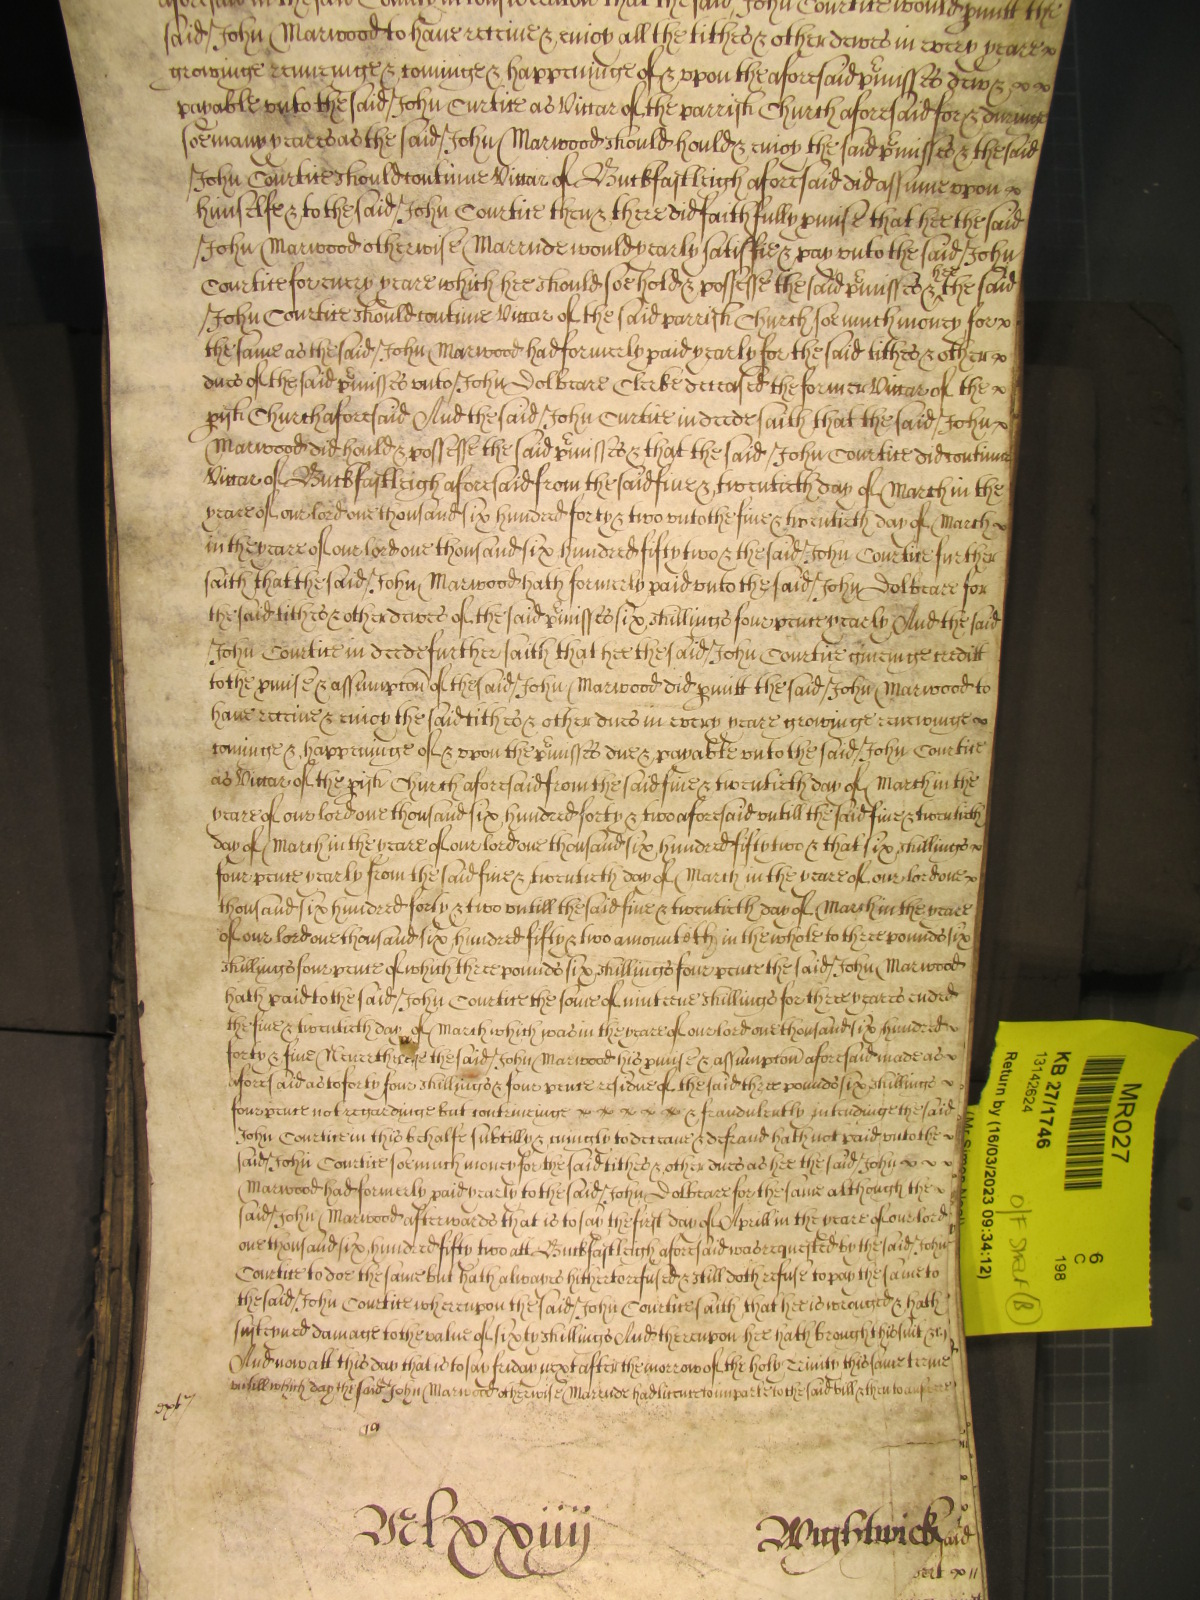 aforesaid in the said County in consideration that the said John Courtice would pmitt the
said John Marwood to have receive & enioy all the tithes & other dewes in every yeare x
growinge renewinge & cominge & happeninge of & vpon the aforesaid pmisses dew & x x
payable vnto the said John Curtice as Viccar of the parrish Church aforesaid for & duringe
soe many yeares as the said John Marwood should hould & enioy the said pmisses & the said
John Courtice should continue Viccar of Buckfastleigh aforesaid did assume vpon x
himselfe & to the said John Courtice then & there did faithfully pmise that hee the said
John Marwood otherwise Marrude would yearly satisfie & pay vnto the said John
Courtice for every yeare which hee should soe hold & possesse the said pmisses & hee the said
John Courtice should continue Viccar of the said parrish Church soe much money for x
the same as the said John Marwood had formerly paid yearly for the said tithes & other x
dues of the said pmisses vnto John Dolbeare Clerke deceased the former Viccar of the x
pish Church aforesaid And the said John Curtice indeede saith that the said John x
Marwood did hould & possesse the said pmisses & that the said John Courtice did continue
Viccar of Buckfastleigh aforesaid from the said five & twentieth day of March in the
yeare of our lord one thousand six hundred forty & two vnto the five & twentieth day of March x
in the yeare of our lord one thousand six hundred fifty two & the said John Courtice further
saith that the said John Marwood hath formerly paid vnto the said John Dolbeare for
the said tithes & other dewes of the said pmisses six shillings four pence yearly And the said
John Courtice in deede further saith that hee the said John Courtice giveinge creditt
to the pmise & assumpcon of the said John Marwood did pmitt the said John Marwood to
have receive & enioy the said tithes & other dues in every yeare growinge renewinge x
cominge & happeninge of & vpon the pmisses due & payable vnto the said John Courtice
as Viccar of the pish Church aforesaid from the said five & twentieth day of March in the
yeare of our lord one thousand six hundred forty & two aforesaid vntill the said five & twentieth
day of March in the yeare of our lord one thousand six hundred fifty two & that six shillings x
four pence yearly from the said five & twentieth day of March in the yeare of our lord one x
thousand six hundred forty & two vntill the said five & twentieth day of March in the yeare
of our lord one thousand six hundred fifty & two amounteth in the whole to three pounds six
shillings four pence of which three pounds six shillings four pence the said John Marwood
hath paid to the said John Courtice the some of ninteene shillings for three yeares ended
the five & twentieth day of March which was in the yeare of our lord one thousand six hundred x
forty & five Neverthelesse the said John Marwood his pmise & assumpcon aforesaid made as x
aforesaid as to forty four shillings & four pence residue of the said three pounds six shillings x
four pence not regardinge but contriveinge x x x x x & fraudulently intendinge the said
John Courtice in this behalfe subtilly & cuningly to deceave & defraud hath not paid vnto the x
said John Courtice soe much money for the said tithes & other dues as hee the said John x x x
Marwood had formerly paid yearly to the said John Dolbeare for the same although the x
said John Marwood afterwards that is to say the first day of Aprill in the yeare of our lord
one thousand six hundred fifty two att Buckfastleigh aforesaid was requested by the said John
Courtice to doe the same but hath alwayes hitherto refused & still doth refuse to pay the same to
the said John Courtice whereupon the said John Courtice saith that hee is wronged & hath
susteyned damage to the value of sixty shillings And thereupon hee hath brought this suit &c
And now att this day that is to say friday next after the morrow of the holy Trinity this same terme
vntill which day the said John Marwood otherwise Marrude had licence to imparle to the said bill & then to answere
Mlxxiiij
Wightwick
said
MR027
KB 27/1746
13142624
Return by (16/03/2023 09:34:12)
6
C
198